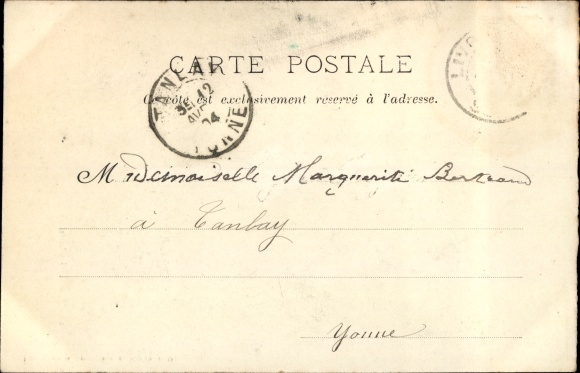 CARTE POSTALE
Ce côté est exclusivement réservé à l'adresse.
TANLAY
12
AVR
04
YONNE
Mademoiselle Marguerite Bertrand
à Tanlay
Yonne